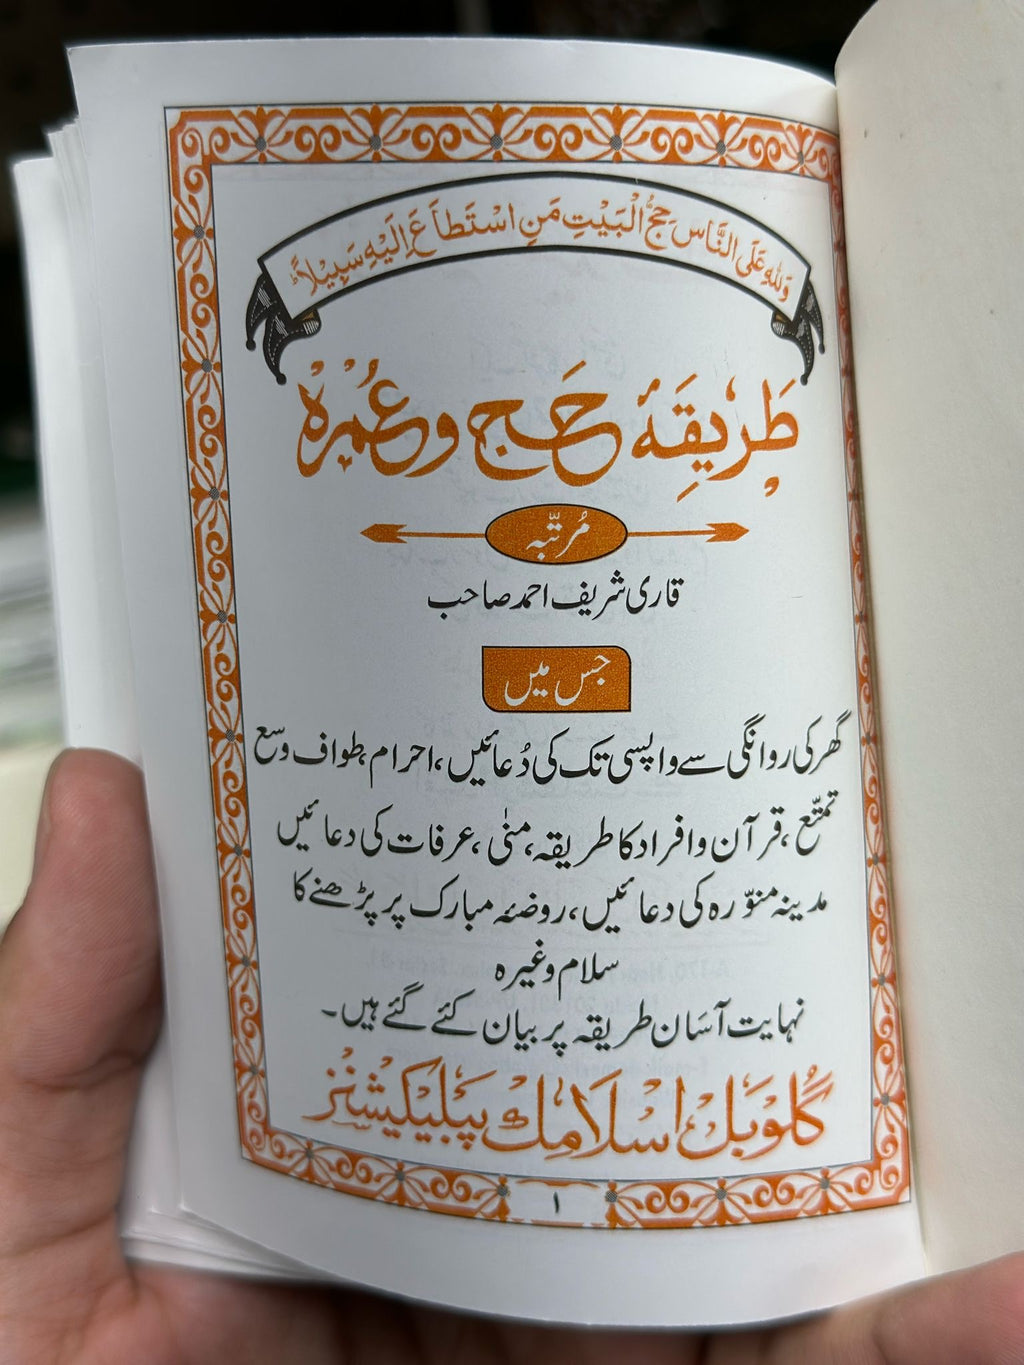 وَلِلّٰهِ عَلَی النَّاسِ حَجُّ الْبَیْتِ مَنِ اسْتَطَاعَ اِلَیْهِ سَبِیْلًا ؕ
طَرِیقِۂ حَج و عُمْرہْ
مُرتّبہ
قاری شریف احمد صاحب
جس میں
گھر کی روانگی سے واپسی تک کی دُعائیں، احرام، طواف وسع
تمتّع، قرآن و افراد کا طریقہ، منٰی، عرفات کی دعائیں
مدینہ منوّرہ کی دعائیں، روضئہ مبارک پر پڑھنے کا
سلام وغیرہ
نہایت آسَان طریقہ پر بیان کئے گئے ہیں۔
گلوبَل اسلامِک پبلیکیشنز
۱